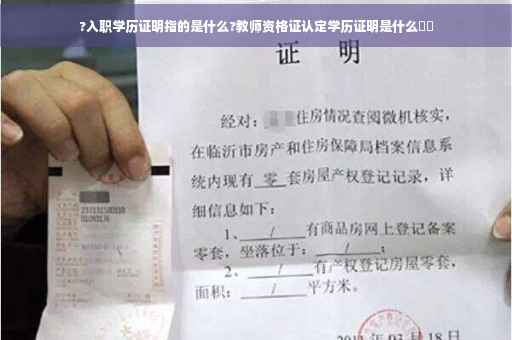 ?入职学历证明指的是什么?教师资格证认定学历证明是什么
证 明
经对：住房情况查阅微机核实，
在临沂市房产和住房保障局档案信息系
统内现有 零 套房屋产权登记记录，详
细信息如下：
1、 / 有商品房网上登记备案
零套，坐落位于： / ；
2、 / 有产权登记房屋零套，
面积： / 平方米。
03月18日